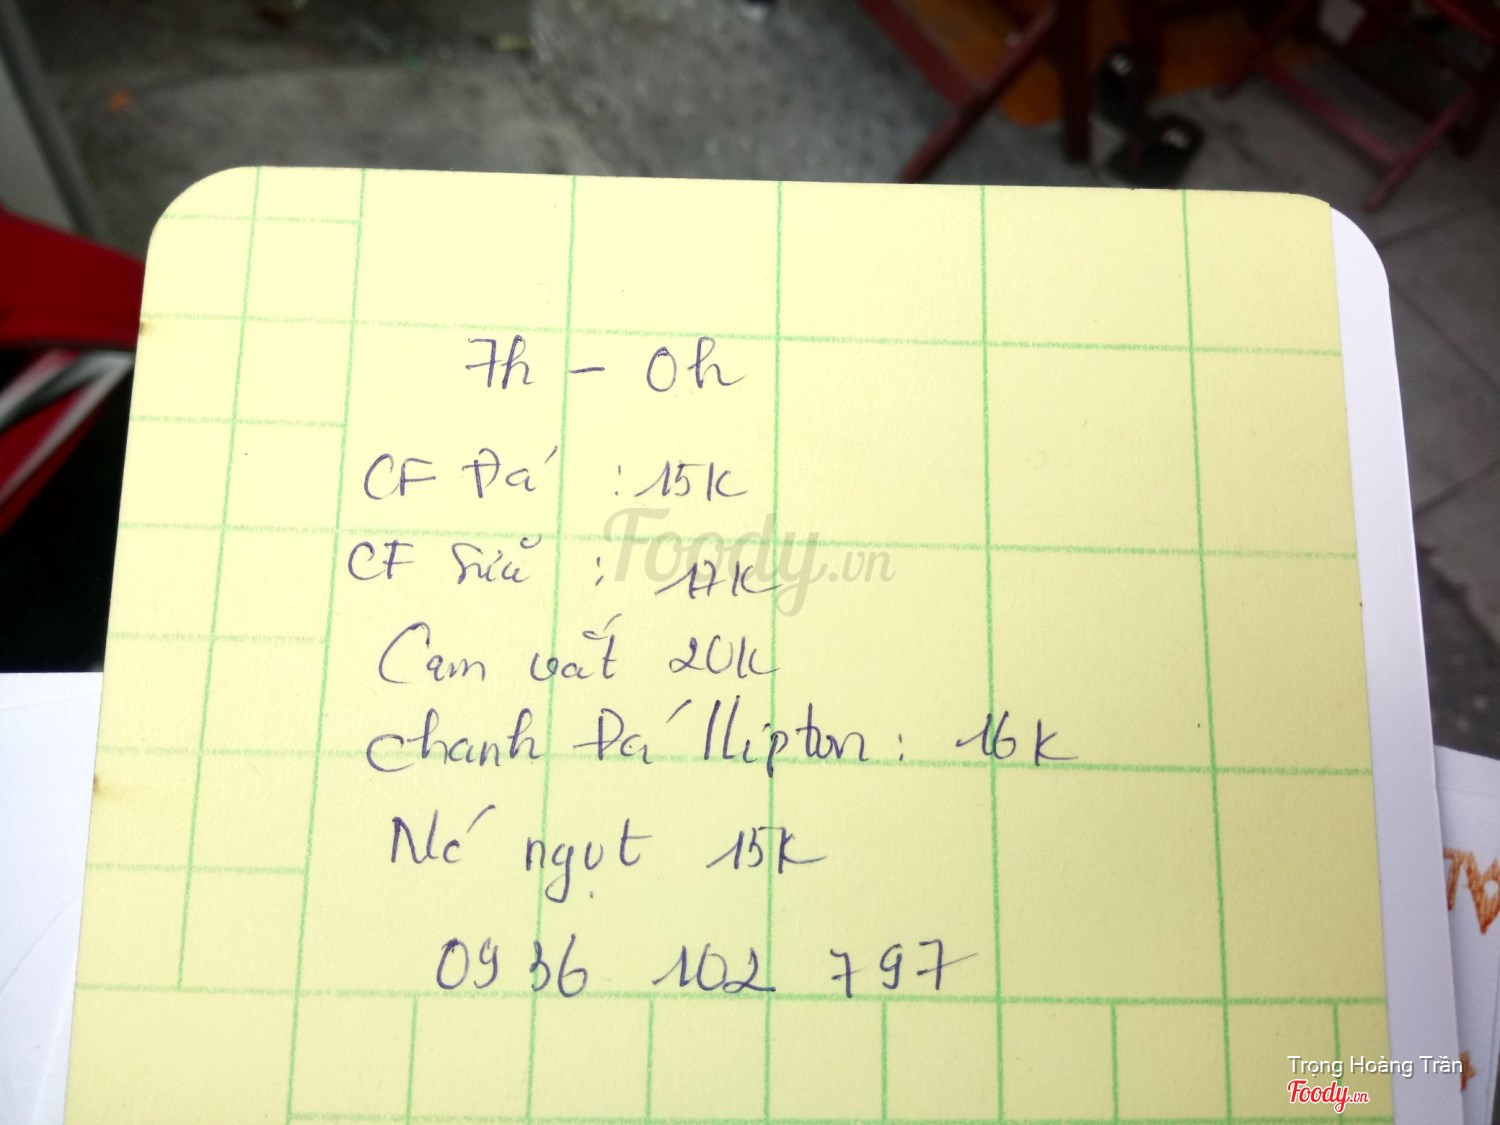 7h - 0h
CF Đá : 15K
CF Sữa : 17K
Cam vắt 20K
Chanh Đá / lipton : 16K
Nc ngọt 15K
0936 102 797
Foody.vn
Trọng Hoàng Trần
Foody.vn